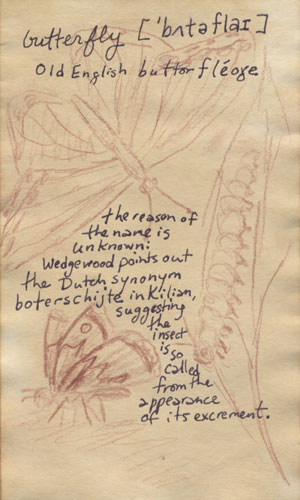 butterfly ['bʌtəflaɪ]
Old English buttorfléoge
the reason of
the name is
unknown:
Wedgewood points out
the Dutch synonym
boterschijte in Kilian,
suggesting
the
insect
is so
called
from the
appearance
of its excrement.